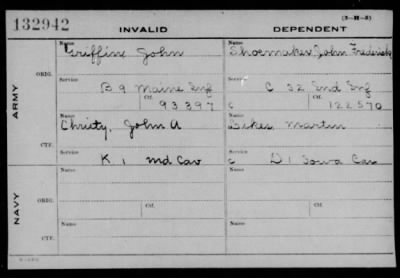 (3-H-3)
132942 INVALID DEPENDENT
Name Name
Griffin John Shoemaker, John Frederick
ORIG.
Service Service
B 9 Maine Inf C 32 Ind Inf
Ctf. Ctf.
93397 C 122570
ARMY
Name Name
Christy, John A Sikes Martin
CTF.
Service Service
K. 1 Md Cav C D 1 Iowa Cav
Name Name
ORIG.
Ctf. Ctf.
Service Service
NAVY
Name Name
CTF.
Service Service